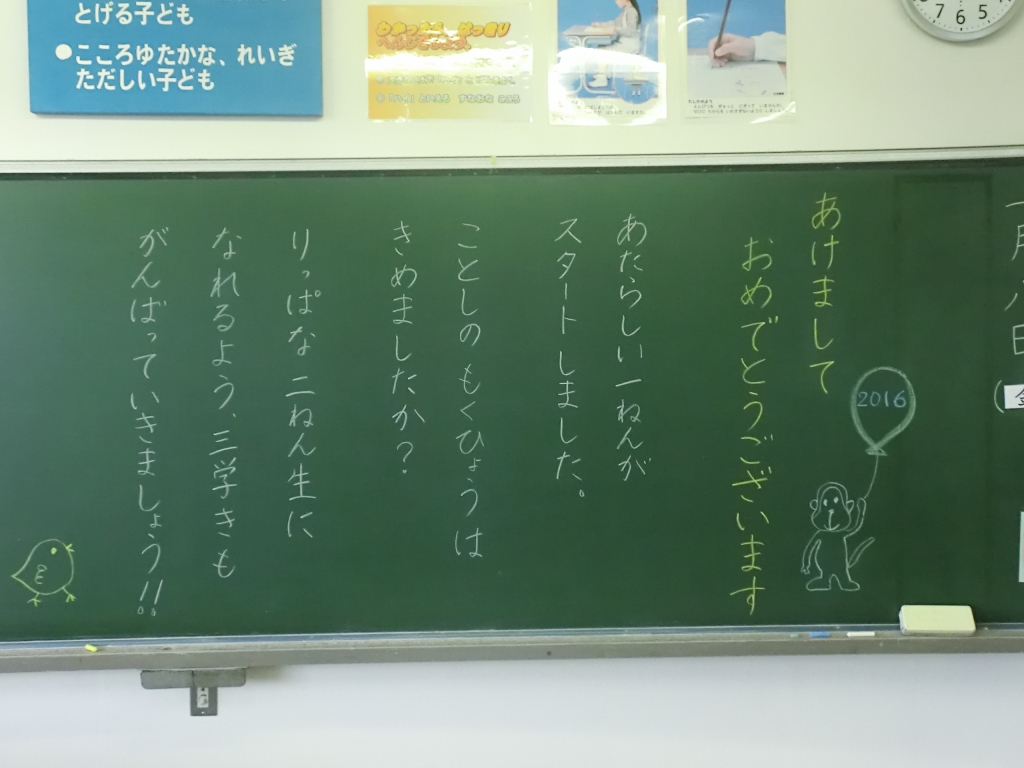 とげる子ども
●こころゆたかな、れいぎ
ただしい子ども
7 6 5
一月八日
(金
あけまして
おめでとうございます
2016
あたらしい一ねんが
スタートしました。
ことしの もくひょうは
きめましたか?
りっぱな 二ねん生に
なれるよう、三学きも
がんばっていきましょう!!